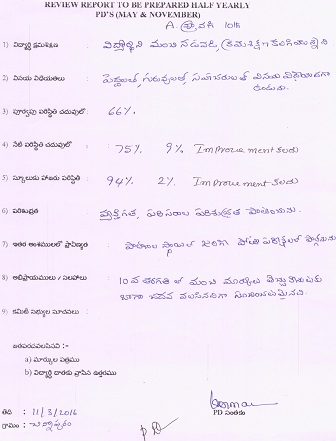 REVIEW REPORT TO BE PREPARED HALF YEARLY
PD'S (MAY & NOVEMBER)
A. 10th
1) విద్యార్థి క్రమశిక్షణ : విద్యార్థిని మంచి నడువడి, క్రమశిక్షణ కలిగియున్నది
2) వినయ విధేయతలు : పెద్దలతో, గురువులతో, సహచరులతో వినయ విధేయతగా
ఉండును.
3) పూర్వపు పరిస్థితి చదువులో : 66%.
4) నేటి పరిస్థితి చదువులో : 75%. 9% Improvement కలదు
5) స్కూలుకు హాజరు పరిస్థితి : 94%. 2%. Improvement కలదు
6) పరిశుభ్రత : వ్యక్తిగత, పరిసరాల పరిశుభ్రత పాటించును.
7) ఇతర అంశములలో ప్రావీణ్యత : పాఠశాల స్థాయిలో జరిగే పోటీ పరీక్షలలో పాల్గొనును
8) అభిప్రాయములు / సలహాలు : 10వ తరగతి లో మంచి మార్కులు తెచ్చుకొనుటకు
బాగా చదవ వలసినదిగా సూచించనైనది.
9) కమిటీ సభ్యుల సూచనలు :
జతపరచవలసినవి :-
a) మార్కుల పత్రము
b) విద్యార్థి దాతకు వ్రాసిన ఉత్తరము
తేది : 11/3/2016
గ్రామం :
PD సంతకం
PD